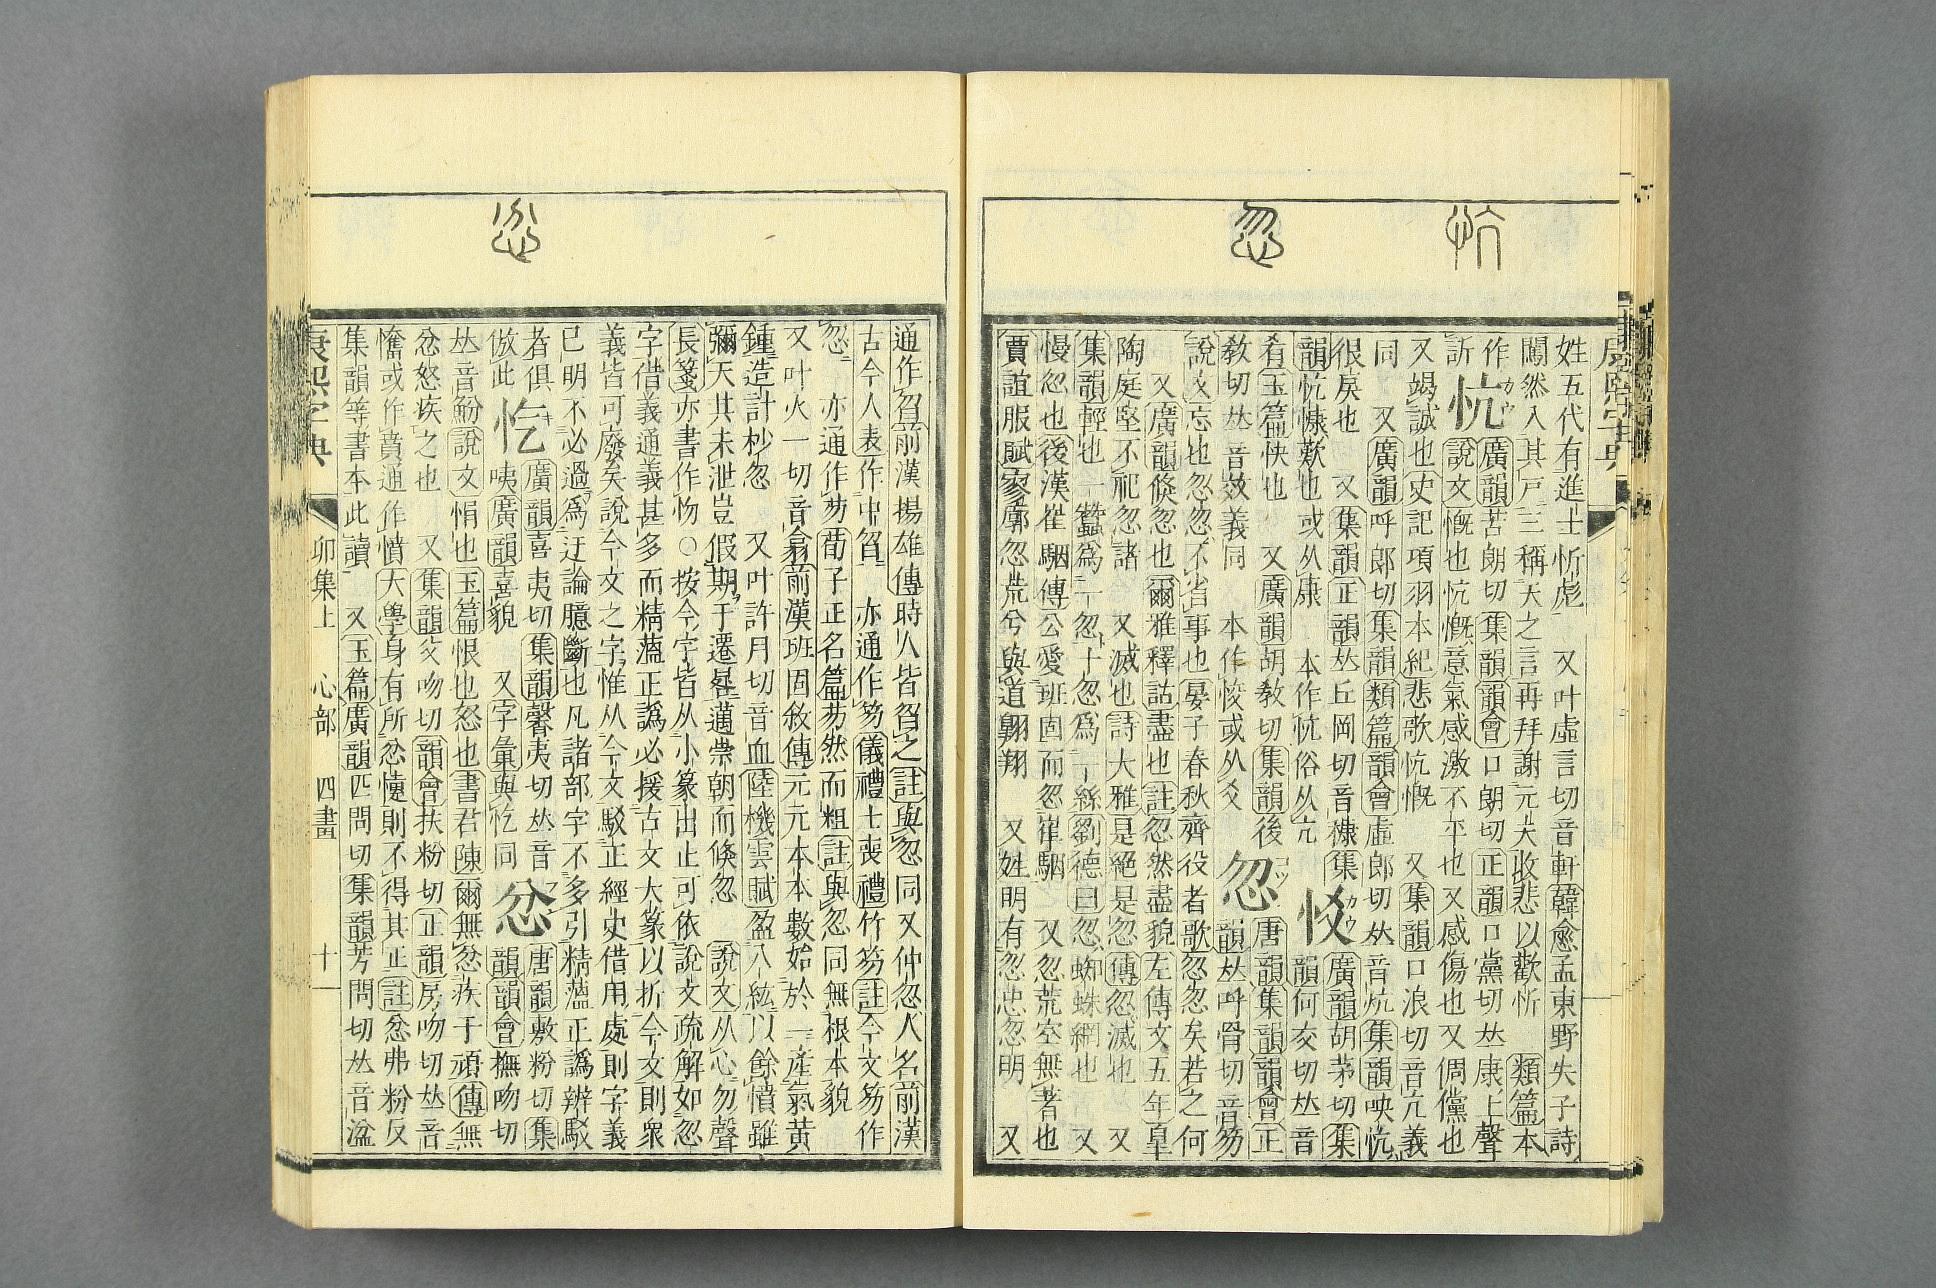 忼
忽
姓五代有進士忻彪 又叶虛言切音軒韓愈孟東野失子詩
闖然入其戸三稱天之言再拜謝元夫收悲以歡忻 類篇本
作 廣韻苦朗切集韻韻會口朗切正韻口黨切𠀤康上聲
訢 忼 說文慨也忼慨意氣感激不平也又感傷也又倜儻也
又竭誠也史記項羽本紀悲歌忼慨 又集韻口浪切音亢義
同 又廣韻呼郎切集韻類篇韻會虛郎切𠀤音炕集韻咉忼
很戾也 又集韻正韻𠀤丘岡切音穅集 㤊 廣韻胡茅切集
韻忼慷歎也或从康 本作忼俗从亢 韻何交切𠀤音
肴玉篇快也 又廣韻胡敎切集韻後 忽 唐韻集韻韻會正
敎切𠀤音效義同 本作恔或从爻 韻𠀤呼骨切音笏
說文忘也忽忽不省事也晏子春秋齊役者歌忽忽矣若之何
又廣韻倐忽也爾雅釋詁盡也註忽然盡貌左傳文五年臯
陶庭堅不祀忽諸 又滅也詩大雅是絕是忽傳忽滅也 又
集韻輕也一蠶爲一忽十忽爲一絲劉德曰忽蜘蛛網也 又
慢忽也後漢崔駰傳公愛班固而忽崔駰 又忽荒空無著也
賈誼服賦寥廓忽荒兮與道翺翔 又姓明有忽忠忽明 又
忿
通作曶前漢揚雄傳時人皆曶之註與忽同又仲忽人名前漢
古今人表作中曶 亦通作笏儀禮士喪禮竹笏註今文笏作
忽 亦通作芴荀子正名篇芴然而粗註與忽同無根本貌
又叶火一切音翕前漢班固敘傳元元本本數始於一產氣黃
鍾造計秒忽 又叶許月切音血陸機雲賦盈八紘以餘憤雖
彌天其未泄豈假期于遷晷邁崇朝而倐忽 說文从心勿聲
長箋亦書作㫚○按今字皆从小篆出止可依說文疏解如忽
字借義通義甚多而精薀正譌必援古文大篆以折今文則衆
義皆可廢矣說今文之字惟从今文駁正經史借用處則字義
已明不必過爲迂論臆斷也凡諸部字不多引精薀正譌辨駁
者俱 廣韻喜夷切集韻馨夷切𠀤音 唐韻敷粉切集
倣此 忔 咦廣韻喜貌 又字彙與忔同 忿 韻韻會撫吻切
𠀤音魵說文悁也玉篇恨也怒也書君陳爾無忿疾于頑傳無
忿怒疾之也 又集韻父吻切韻會扶粉切正韻房吻切𠀤音
憤或作賁通作憤大學身有所忿懥則不得其正註忿弗粉反
集韻等書本此讀 又玉篇廣韻匹問切集韻芳問切𠀤音湓
康熙字典 卯集上 心部 四畫 十一